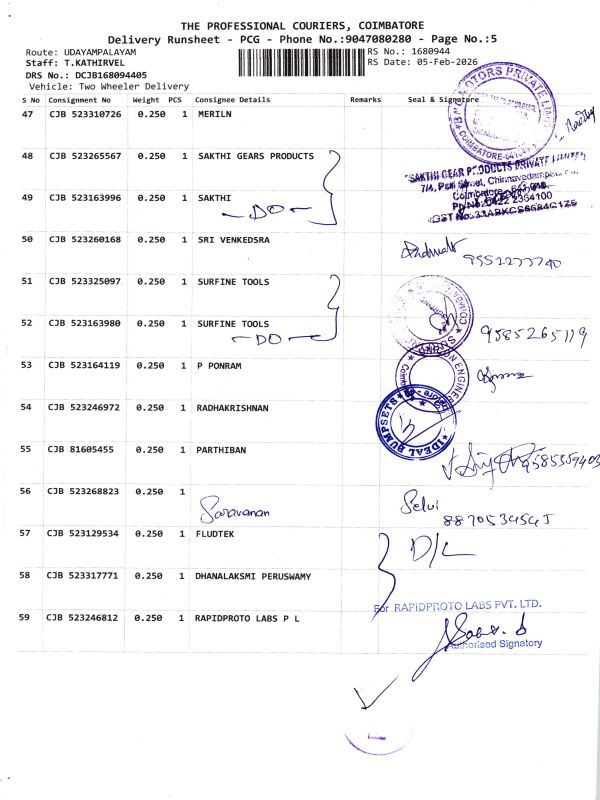 THE PROFESSIONAL COURIERS, COIMBATORE
Delivery Runsheet - PCG - Phone No.:9047080280 - Page No.:5
Route: UDAYAMPALAYAM RS No.: 1680944
Staff: T.KATHIRVEL RS Date: 05-Feb-2026
DRS No.: DCJB168094405
Vehicle: Two Wheeler Delivery
S No Consignment No Weight PCS Consignee Details Remarks Seal & Signature
47 CJB 523310726 0.250 1 MERILN
48 CJB 523265567 0.250 1 SAKTHI GEARS PRODUCTS
SAKTHI GEAR PRODUCTS PRIVATE LIMITED
49 CJB 523163996 0.250 1 SAKTHI
- DO -
50 CJB 523260168 0.250 1 SRI VENKEDSRA
51 CJB 523325097 0.250 1 SURFINE TOOLS
52 CJB 523163980 0.250 1 SURFINE TOOLS
- DO - 9585265119
53 CJB 523164119 0.250 1 P PONRAM
54 CJB 523246972 0.250 1 RADHAKRISHNAN
IDEAL BUMPSETS
55 CJB 81605455 0.250 1 PARTHIBAN
56 CJB 523268823 0.250 1
Saravanan Selvi
57 CJB 523129534 0.250 1 FLUDTEK
D/L
58 CJB 523317771 0.250 1 DHANALAKSMI PERUSWAMY
For RAPIDPROTO LABS PVT. LTD.
59 CJB 523246812 0.250 1 RAPIDPROTO LABS P L
Authorised Signatory